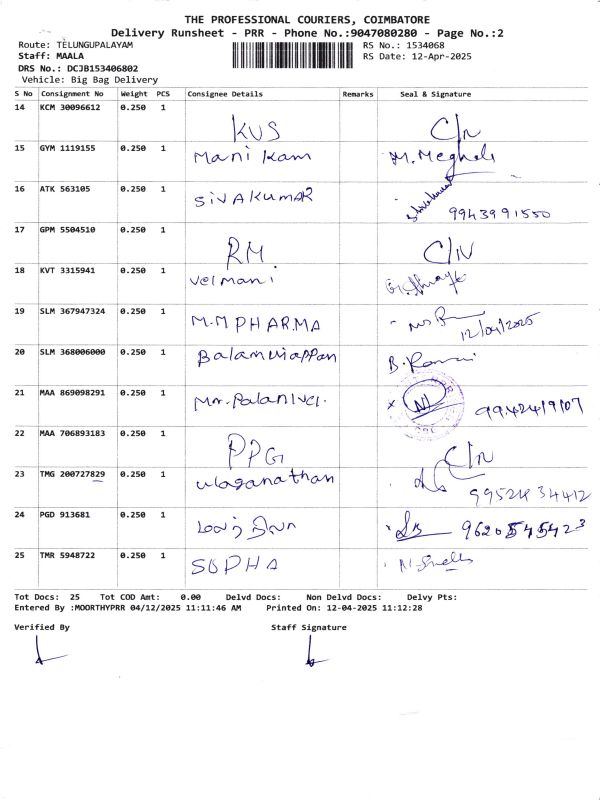 THE PROFESSIONAL COURIERS, COIMBATORE
Delivery Runsheet - PRR - Phone No.:9047080280 - Page No.:2
Route: TELUNGUPALAYAM RS No.: 1534068
Staff: MAALA RS Date: 12-Apr-2025
DRS No.: DCJB153406802
Vehicle: Big Bag Delivery
S No Consignment No Weight PCS Consignee Details Remarks Seal & Signature
14 KCM 30096612 0.250 1 KUS
15 GYM 1119155 0.250 1 Mani kam M. Megha
16 ATK 563105 0.250 1 SIVAKUMAR 9943991550
17 GPM 5504510 0.250 1 RM
18 KVT 3315941 0.250 1 Velmani
19 SLM 367947324 0.250 1 M.M PHARMA 12/04/2025
20 SLM 368006000 0.250 1 B.
21 MAA 869098291 0.250 1 Mr. Palanivel.
22 MAA 706893183 0.250 1 PPG
23 TMG 200727829 0.250 1 ulaganathan 9952434412
24 PGD 913681 0.250 1
25 TMR 5948722 0.250 1 SOPHA
Tot Docs: 25 Tot COD Amt: 0.00 Delvd Docs: Non Delvd Docs: Delvy Pts:
Entered By :MOORTHYPRR 04/12/2025 11:11:46 AM Printed On: 12-04-2025 11:12:28
Verified By Staff Signature